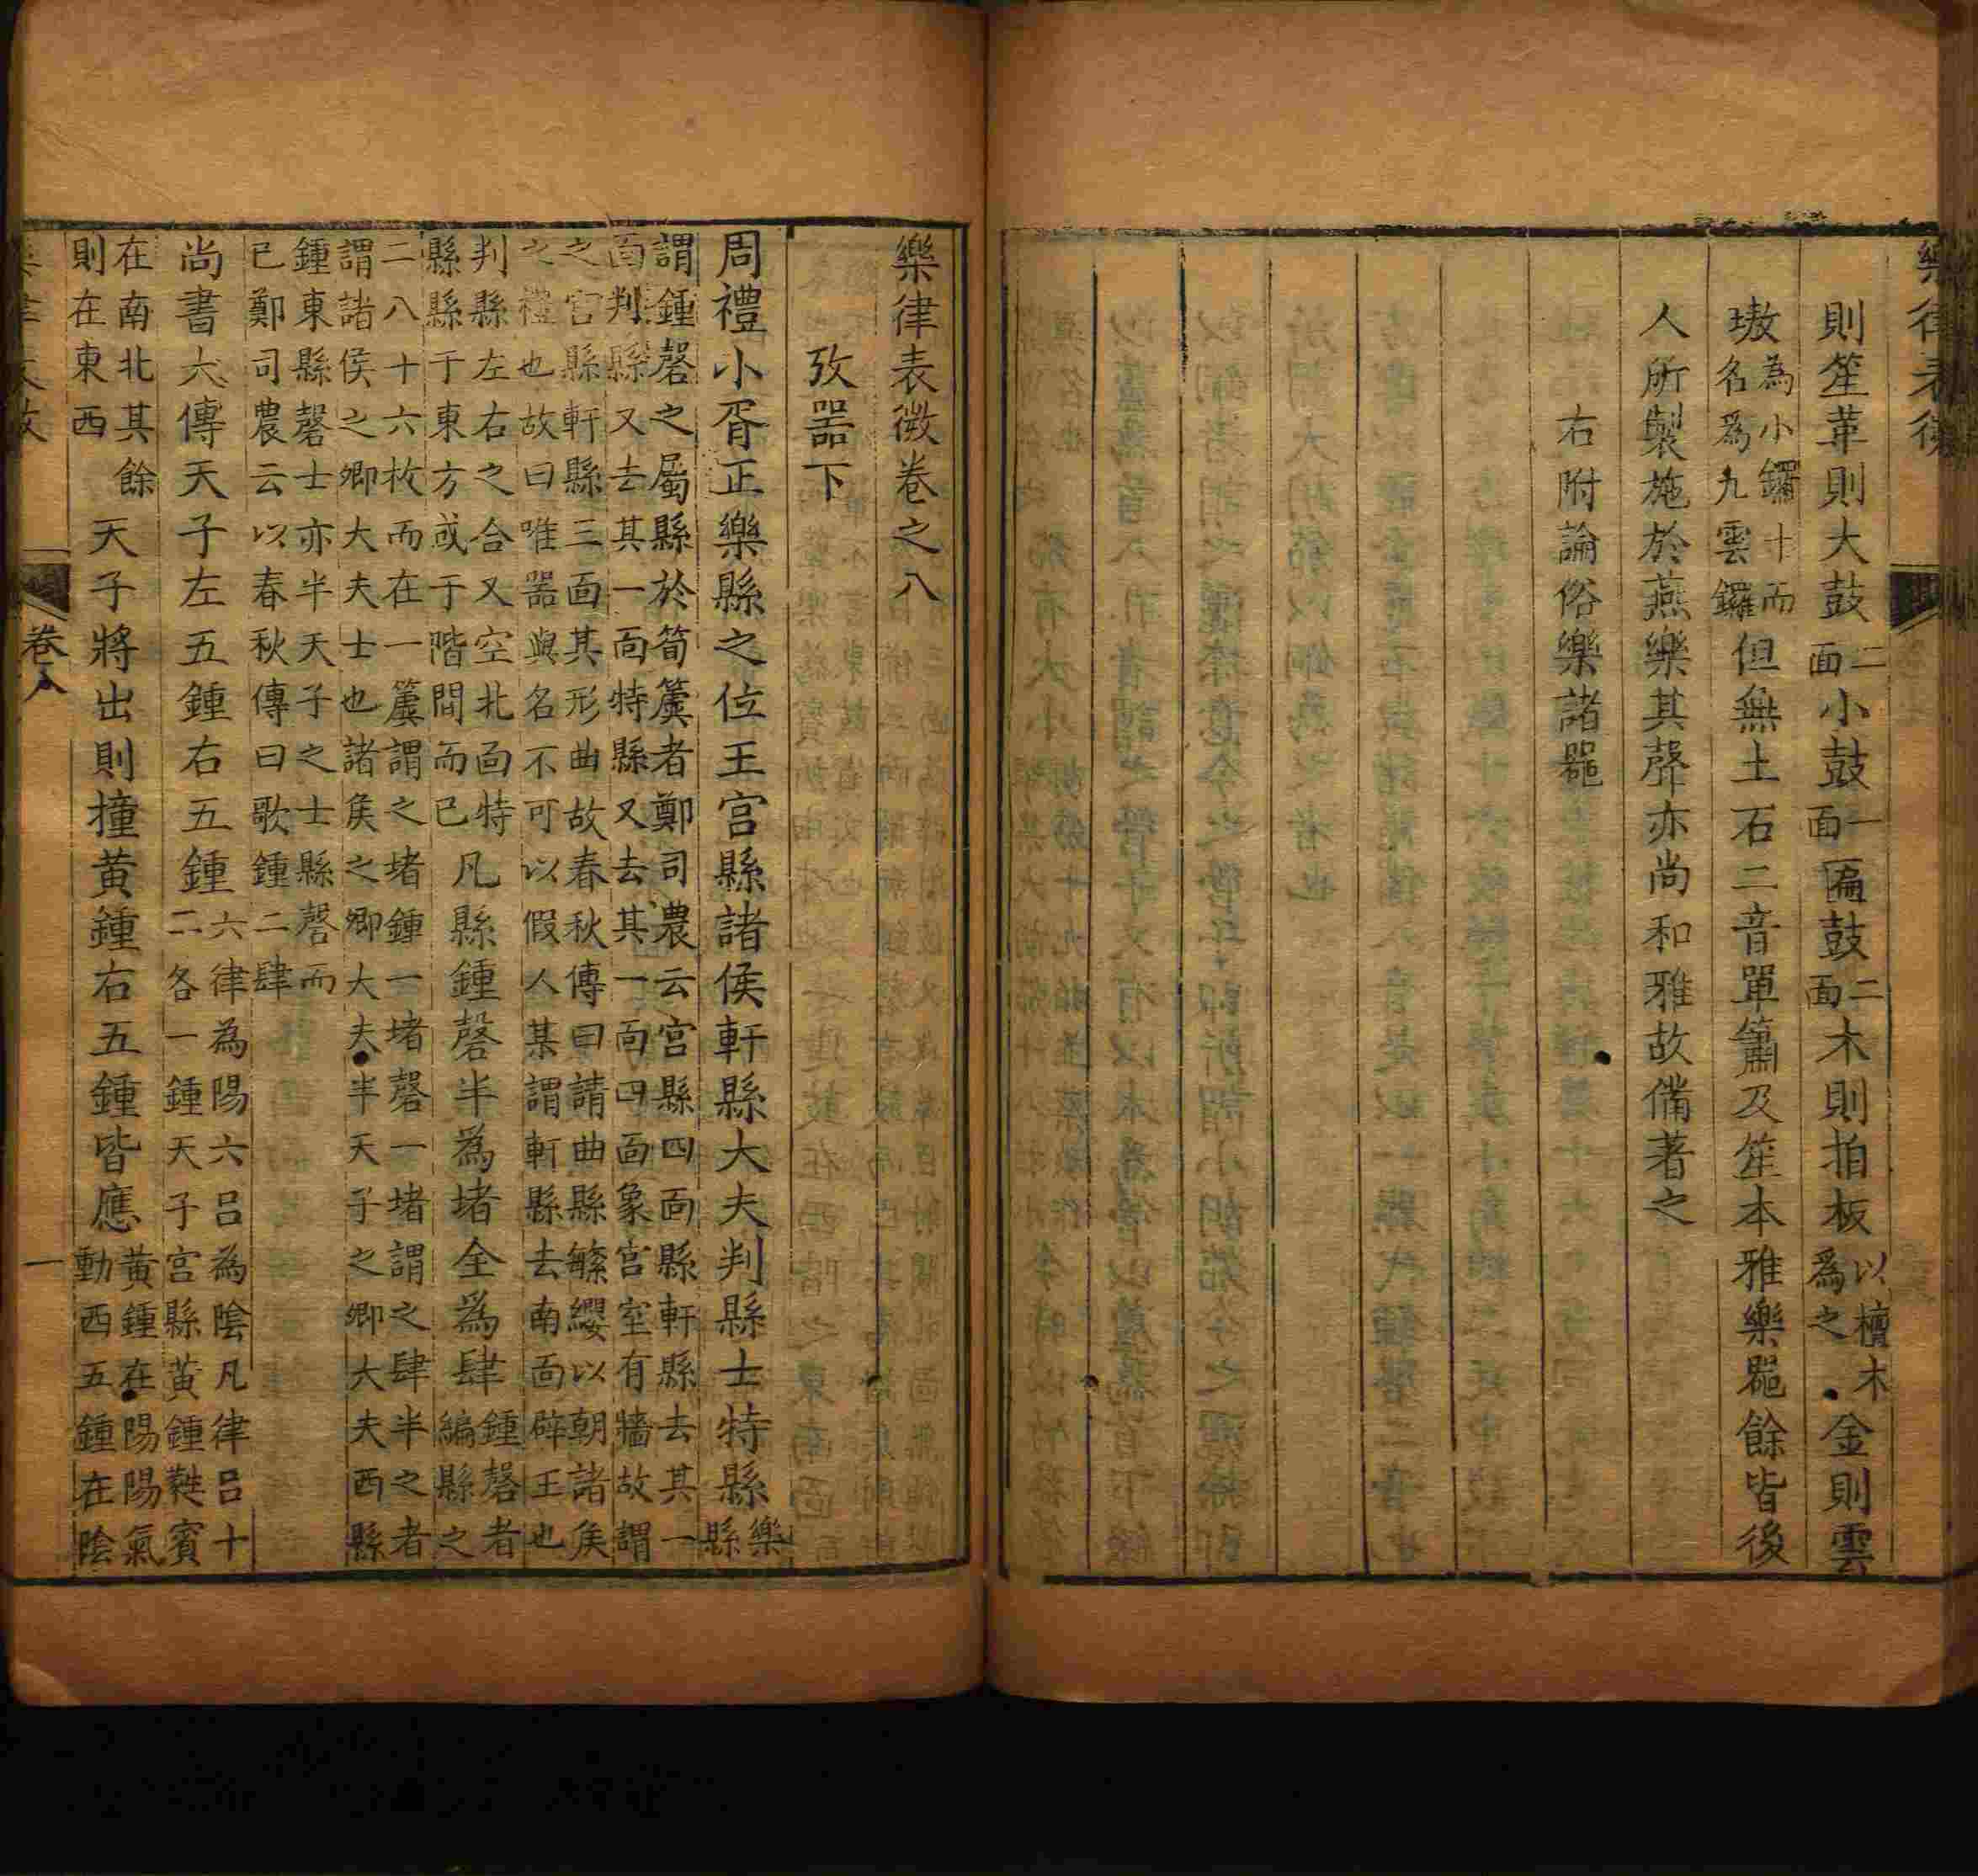 樂律表微
則笙革則大鼓二面小鼓一面匾鼓二面木則拍板以檀木爲之金則雲
璈為小鑼十而名爲九雲鑼但無土石二音單簫及笙本雅樂噐餘皆後
人所製施於燕樂其聲亦尚和雅故備著之
右附論俗樂諸噐
樂律表微卷之八
攷噐下
周禮小胥正樂縣之位王宫縣諸侯軒縣大夫判縣士特縣樂縣
謂鍾磬之屬縣於筍簴者鄭司農云宫縣四面縣軒縣去其一
面判縣又去其一面特縣又去其一面四面象宫室有牆故謂
之宫縣軒縣三面其形曲故春秋傳曰請曲縣繁纓以朝諸矦
之禮也故曰唯噐與名不可以假人某謂軒縣去南面辟王也
判縣左右之合又空北面特
縣縣于東方或于階間而已凡縣鍾磬半為堵全為肆鍾磬者
編縣之
二八十六枚而在一簴謂之堵鍾一堵磬一堵謂之肆半之者
謂諸侯之卿大夫士也諸矦之卿大夫半天子之卿大夫西縣
鍾東縣磬士亦半天子之士縣磬而
已鄭司農云以春秋傳曰歌鍾二肆
尚書大傳天子左五鍾右五鍾六律為陽六呂為陰凡律呂十
二各一鍾天子宫縣黃鍾蕤賓
在南北其餘
則在東西天子將出則撞黃鍾右五鍾皆應黃鍾在陽陽氣
動西五鍾在陰
卷八
一